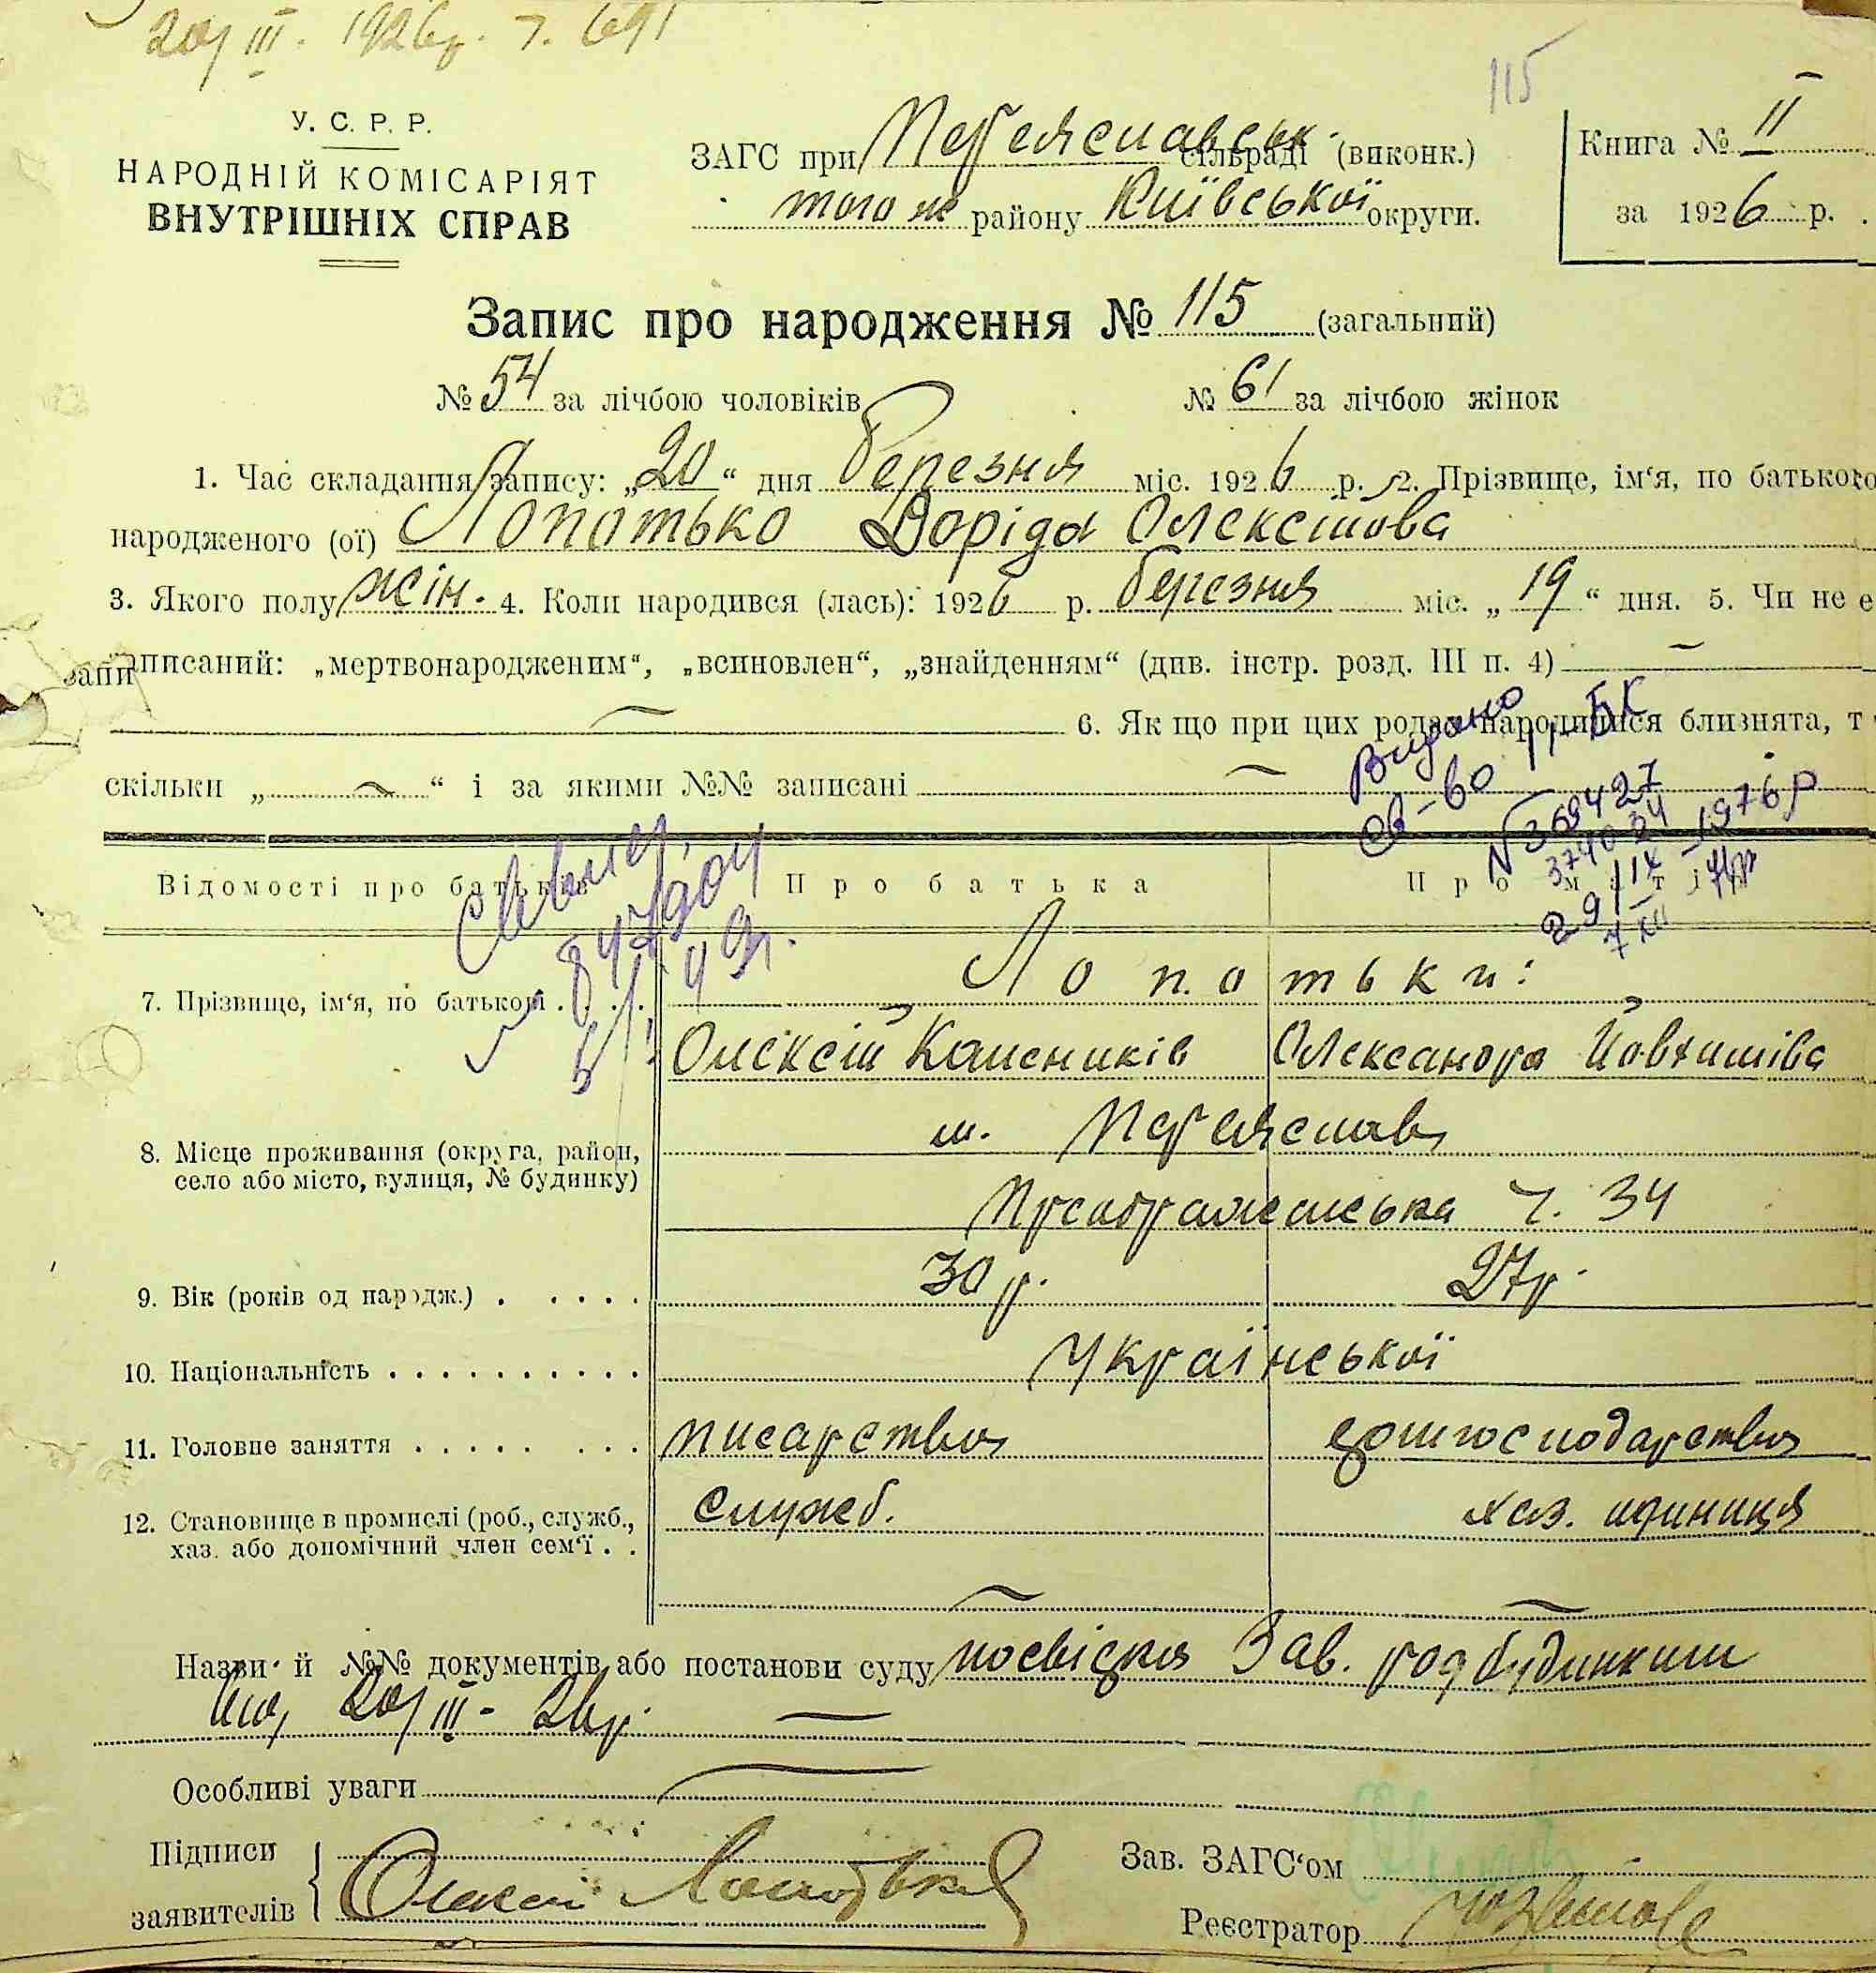 20/III. 1926р. ч. 691
115
У. С. Р. Р.
НАРОДНІЙ КОМІСАРІЯТ
ВНУТРІШНІХ СПРАВ
ЗАГС при Переяславськ. сільраді (виконк.)
того ж району Київської округи.
Книга № II
за 1926 р.
Запис про народження № 115 (загальний)
№ 54 за лічбою чоловіків № 61 за лічбою жінок
1. Час складання запису: „20“ дня березня міс. 1926 р. 2. Прізвище, ім‘я, по батькові
народженого (ої) Лопотько Доріда Олексієва
3. Якого полу жін. 4. Коли народився (лась): 1926 р. березня міс. „19“ дня. 5. Чи не є
записаний: „мертвонародженим“, „всиновлен“, „знайденням“ (див. інстр. розд. III п. 4)
6. Як що при цих родах народилися близнята, т
скільки „ “ і за якими №№ записані
Видано
св-во II-БК
№ 369427
374034
29/IX-1976р
7 XII
Відомості про батьків Про батька Про матір
49р.
7. Прізвище, ім‘я, по батькові Лопотьки:
Олексій Олександра
8. Місце проживання (округа, район, м. Переяслав
село або місто, вулиця, № будинку)
ч. 34
9. Вік (років од народж.) 30 р. 27р.
10. Національність української
11. Головне заняття писарство домгосподарство
12. Становище в промислі (роб., служб., служб. хаз.
хаз. або допомічний член сем‘ї
Назви й №№ документів або постанови суду посвідка Зав. родбудинком
20/III-26р.
Особливі уваги
Підписи
заявителів Олексій Лопотько
Зав. ЗАГС‘ом
Реєстратор